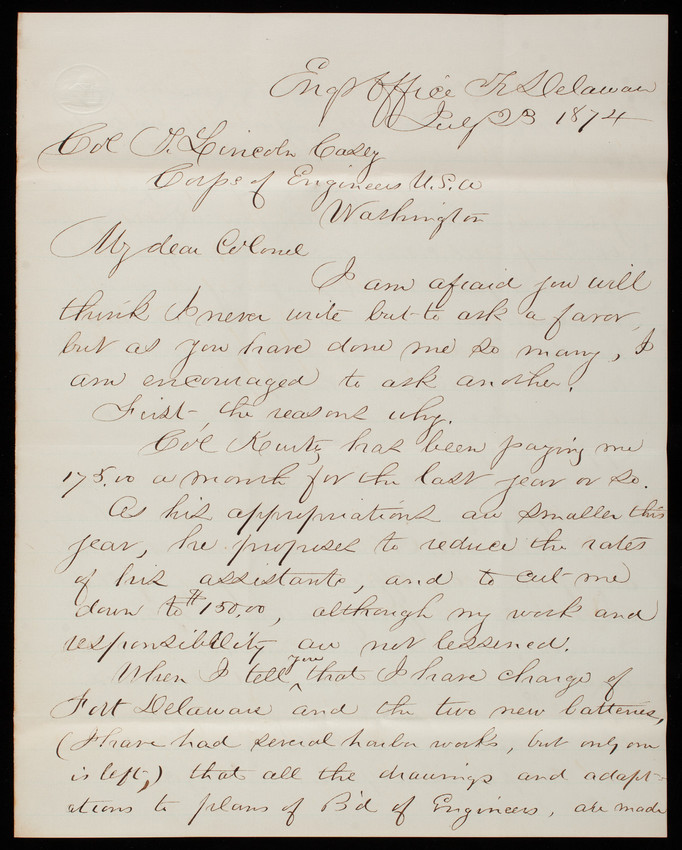 Engr Office Ft Delaware
July 23 1874
Col T. Lincoln Casey
Corps of Engineers U.S.A
Washington
My dear Colonel
I am afraid you will
think I never write but to ask a favor,
but as you have done me so many, I
am encouraged to ask another.
First - the reasons why.
Col Kurtz has been paying me
175.00 a month for the last year or so.
As his appropriations are smaller this
year, he proposes to reduce the rates
of his assistants, and to cut me
down to $150.00, although my work and
responsibility are not lessened.
When I tell you that I have charge of
Fort Delaware and the two new batteries,
(I have had several harbor works, but only one
is left,) that all the drawings and adapt-
ations to plans of B'd of Engineers, are made